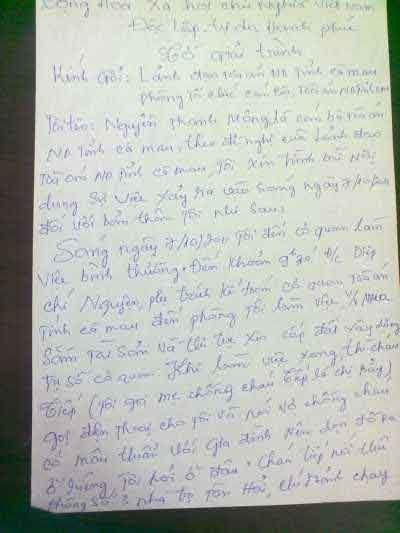 Cộng Hòa Xã hội chủ Nghĩa Việt Nam
Độc lập, tự do Hạnh phúc
Tờ giải trình
Kính gởi: Lãnh đạo tòa án ND tỉnh cà mau
phòng Tổ chức cán bộ, Tòa án ND tỉnh cm
Tôi tên: Nguyễn thanh Mộng là cán bộ tòa án
ND tỉnh cà mau, theo đề nghị của Lãnh đạo
tòa án ND tỉnh cà mau, Tôi xin Nội
dung Sự việc xảy ra vào sáng ngày 7/10/2011
đối với bản thân Tôi như sau;
Sáng ngày 7/10/2011 tôi đến cơ quan làm
việc bình thường. Đến khoản đ/c Diệp
chí Nguyện, phụ trách kế toán cơ quan tòa án
tỉnh cà mau đến phòng tôi làm việc v/v mua
sắm Tài sản và thủ tục xin cấp đất xây dựng
trụ sở cơ quan. Khi làm việc xong thì cháu
Tiếp (Tôi gọi mẹ chồng cháu Tiếp là chị Bảy)
gọi điện thoại cho Tôi và nói vợ chồng cháu
có mâu thuẩn với Gia đình nên dọn đồ ra
ở Tôi hỏi ở đâu. Cháu Tiếp nói thuê
phòng số 3 nhà trọ chạy